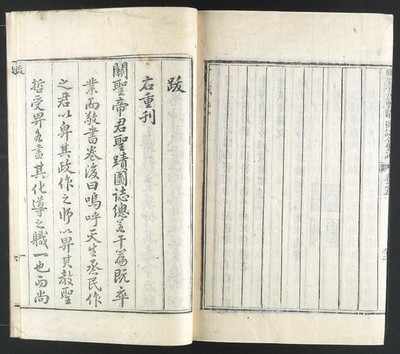 跋
右重刊
關聖帝君聖蹟圖誌總若干篇既卒
業而敬書卷後曰嗚呼天生烝民作
之君以畀其政作之師以畀其教聖
哲受畀者盡其化導之職一也而尚